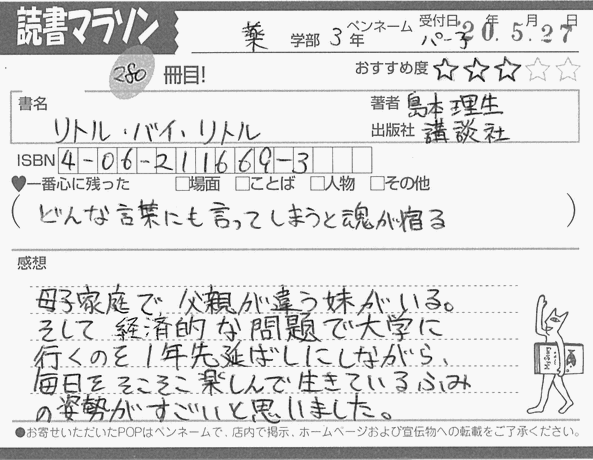 読書マラソン
薬 学部 3年 ペンネーム パー子 受付日 20年5月27日
280 冊目!
おすすめ度 ★★★☆☆
書名
リトル・バイ・リトル
著者 島本理生
出版社 講談社
ISBN 4-06-211669-3
♥一番心に残った □場面 □ことば □人物 □その他
(どんな言葉にも言ってしまうと魂が宿る)
感想
母子家庭で父親が違う妹がいる。
そして経済的な問題で大学に
行くのを1年先延ばしにしながら、
毎日をそこそこ楽しんで生きているふみ
の姿勢がすごいと思いました。
●お寄せいただいたPOPはペンネームで、店内で掲示、ホームページおよび宣伝物への転載をご了承ください。